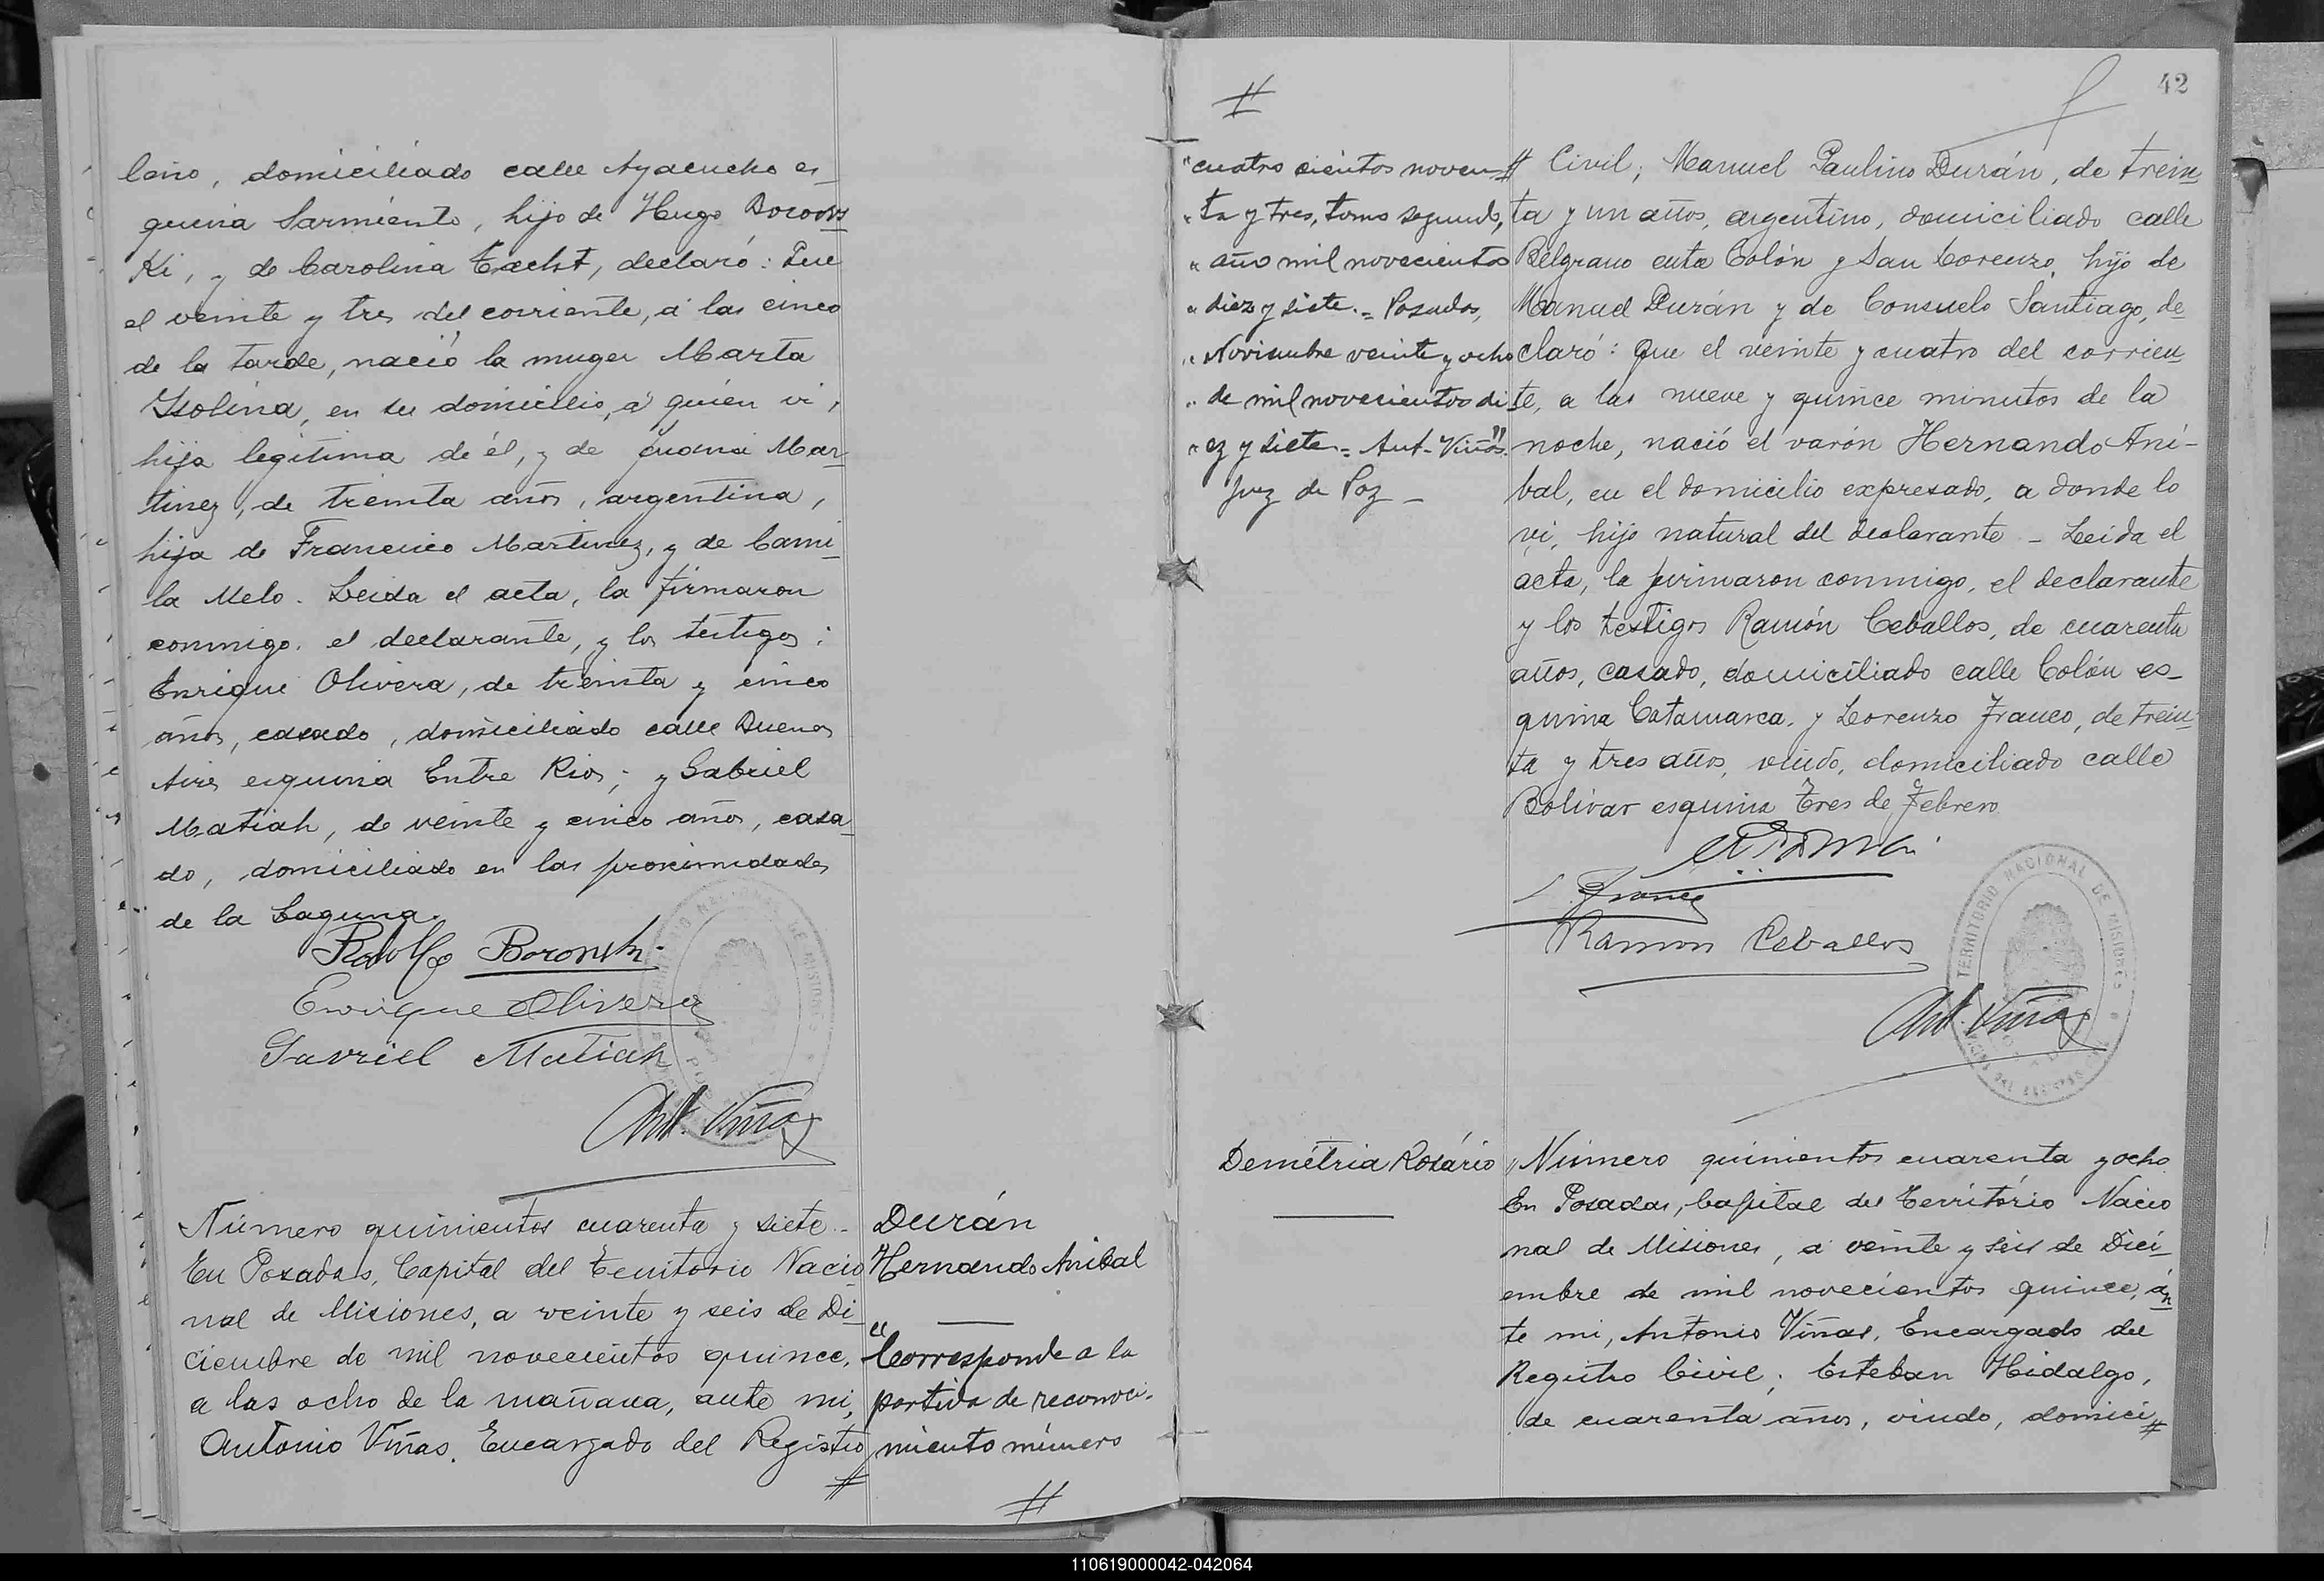 lano, domiciliado calle Ayacucho es_
quina Sarmiento, hijo de Hugo Borows
Ki, y de Carolina Tacht, declaró: Que
el veinte y tres del corriente, á las cinco
de la tarde, nació la muger Marta
Isolina, en su domicilio, á quién vi,
hija legitima de él, y de Juana Mar_
tinez, de treinta años, argentina,
hija de Francisco Martinez, y de Cami_
la Melo. Leida el acta, la firmaron
conmigo, el declarante, y los testigos:
Enrique Olivera, de treinta y cinco
años, casado, domiciliado calle Buenos
Aires esquina Entre Rios; y Gabriel
Matiah, de veinte y cinco años, casa_
do, domiciliado en las proximidades
de la Laguna.
Rodolfo Boronski
Enrique Olivera
Gavriel Matiah
Ant. Viñas
Número quinientos cuarenta y siete_
En Posadas, Capital del Territorio Nacio
nal de Misiones, a veinte y seis de Di_
ciembre de mil novecientos quince,
a las ocho de la mañana, ante mi,
Antonio Viñas, Encargado del Registro
#
Durán
Hernando Anibal
"Corresponde a la
partida de reconoci-
miento número
#
42
#
"cuatro cientos noven_
"ta y tres, tomo segundo,
"año mil novecientos
"diez y siete._ Posadas,
"Noviembre veinte y ocho
"de mil novecientos di
"ez y siete_ Ant. Viñas"
Juez de Paz _
# Civil; Manuel Paulino Durán, de trein_
ta y un años, argentino, domiciliado calle
Belgrano entre Colón y San Lorenzo, hijo de
Manuel Durán y de Consuelo Santiago, de_
claró: que el veinte y cuatro del corrien_
te, a las nueve y quince minutos de la
noche, nació el varón Hernando Ani-
bal, en el domicilio expresado, a donde lo
vi, hijo natural del declarante _ Leida el
acta, la firmaron conmigo, el declarante
y los testigos Ramón Ceballos, de cuarenta
años, casado, domiciliado calle Colón es_
quina Catamarca, y Lorenzo Franco, de trein_
ta y tres años, viudo, domiciliado calle
Bolívar esquina Tres de Febrero
L. Franco
Ramon Ceballos
TERRITORIO NACIONAL DE MISIONES
Ant. Viñas
Demétria Rosário
"Número quinientos cuarenta y ocho
En Posadas, Capital del Território Nacio
nal de Misiones, á veinte y seis de Dici_
embre de mil novecientos quince, án
te mi, Antonio Viñas, Encargado del
Registro Civil; Esteban Hidalgo,
de cuarenta años, viudo, domici
#
110619000042-042064